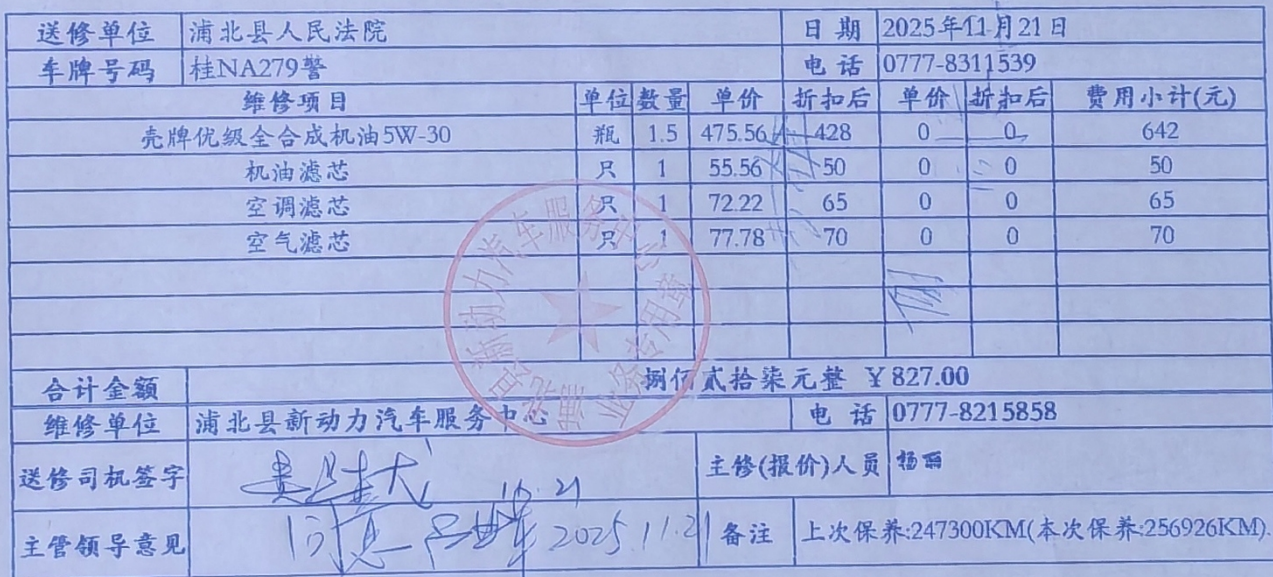 送修单位 浦北县人民法院 日期 2025年11月21日
车牌号码 桂NA279警 电话 0777-8311539
维修项目 单位 数量 单价 折扣后 单价 折扣后 费用小计(元)
壳牌优级全合成机油5W-30 瓶 1.5 475.56 428 0 0 642
机油滤芯 只 1 55.56 50 0 0 50
空调滤芯 只 1 72.22 65 0 0 65
空气滤芯 只 1 77.78 70 0 0 70
浦北县新动力汽车服务中心
业务专用章
合计金额 捌佰贰拾柒元整 ￥827.00
维修单位 浦北县新动力汽车服务中心 电话 0777-8215858
送修司机签字 11.21 主修(报价)人员 杨丽
主管领导意见 同意 2025.11.21 备注 上次保养:247300KM(本次保养:256926KM).